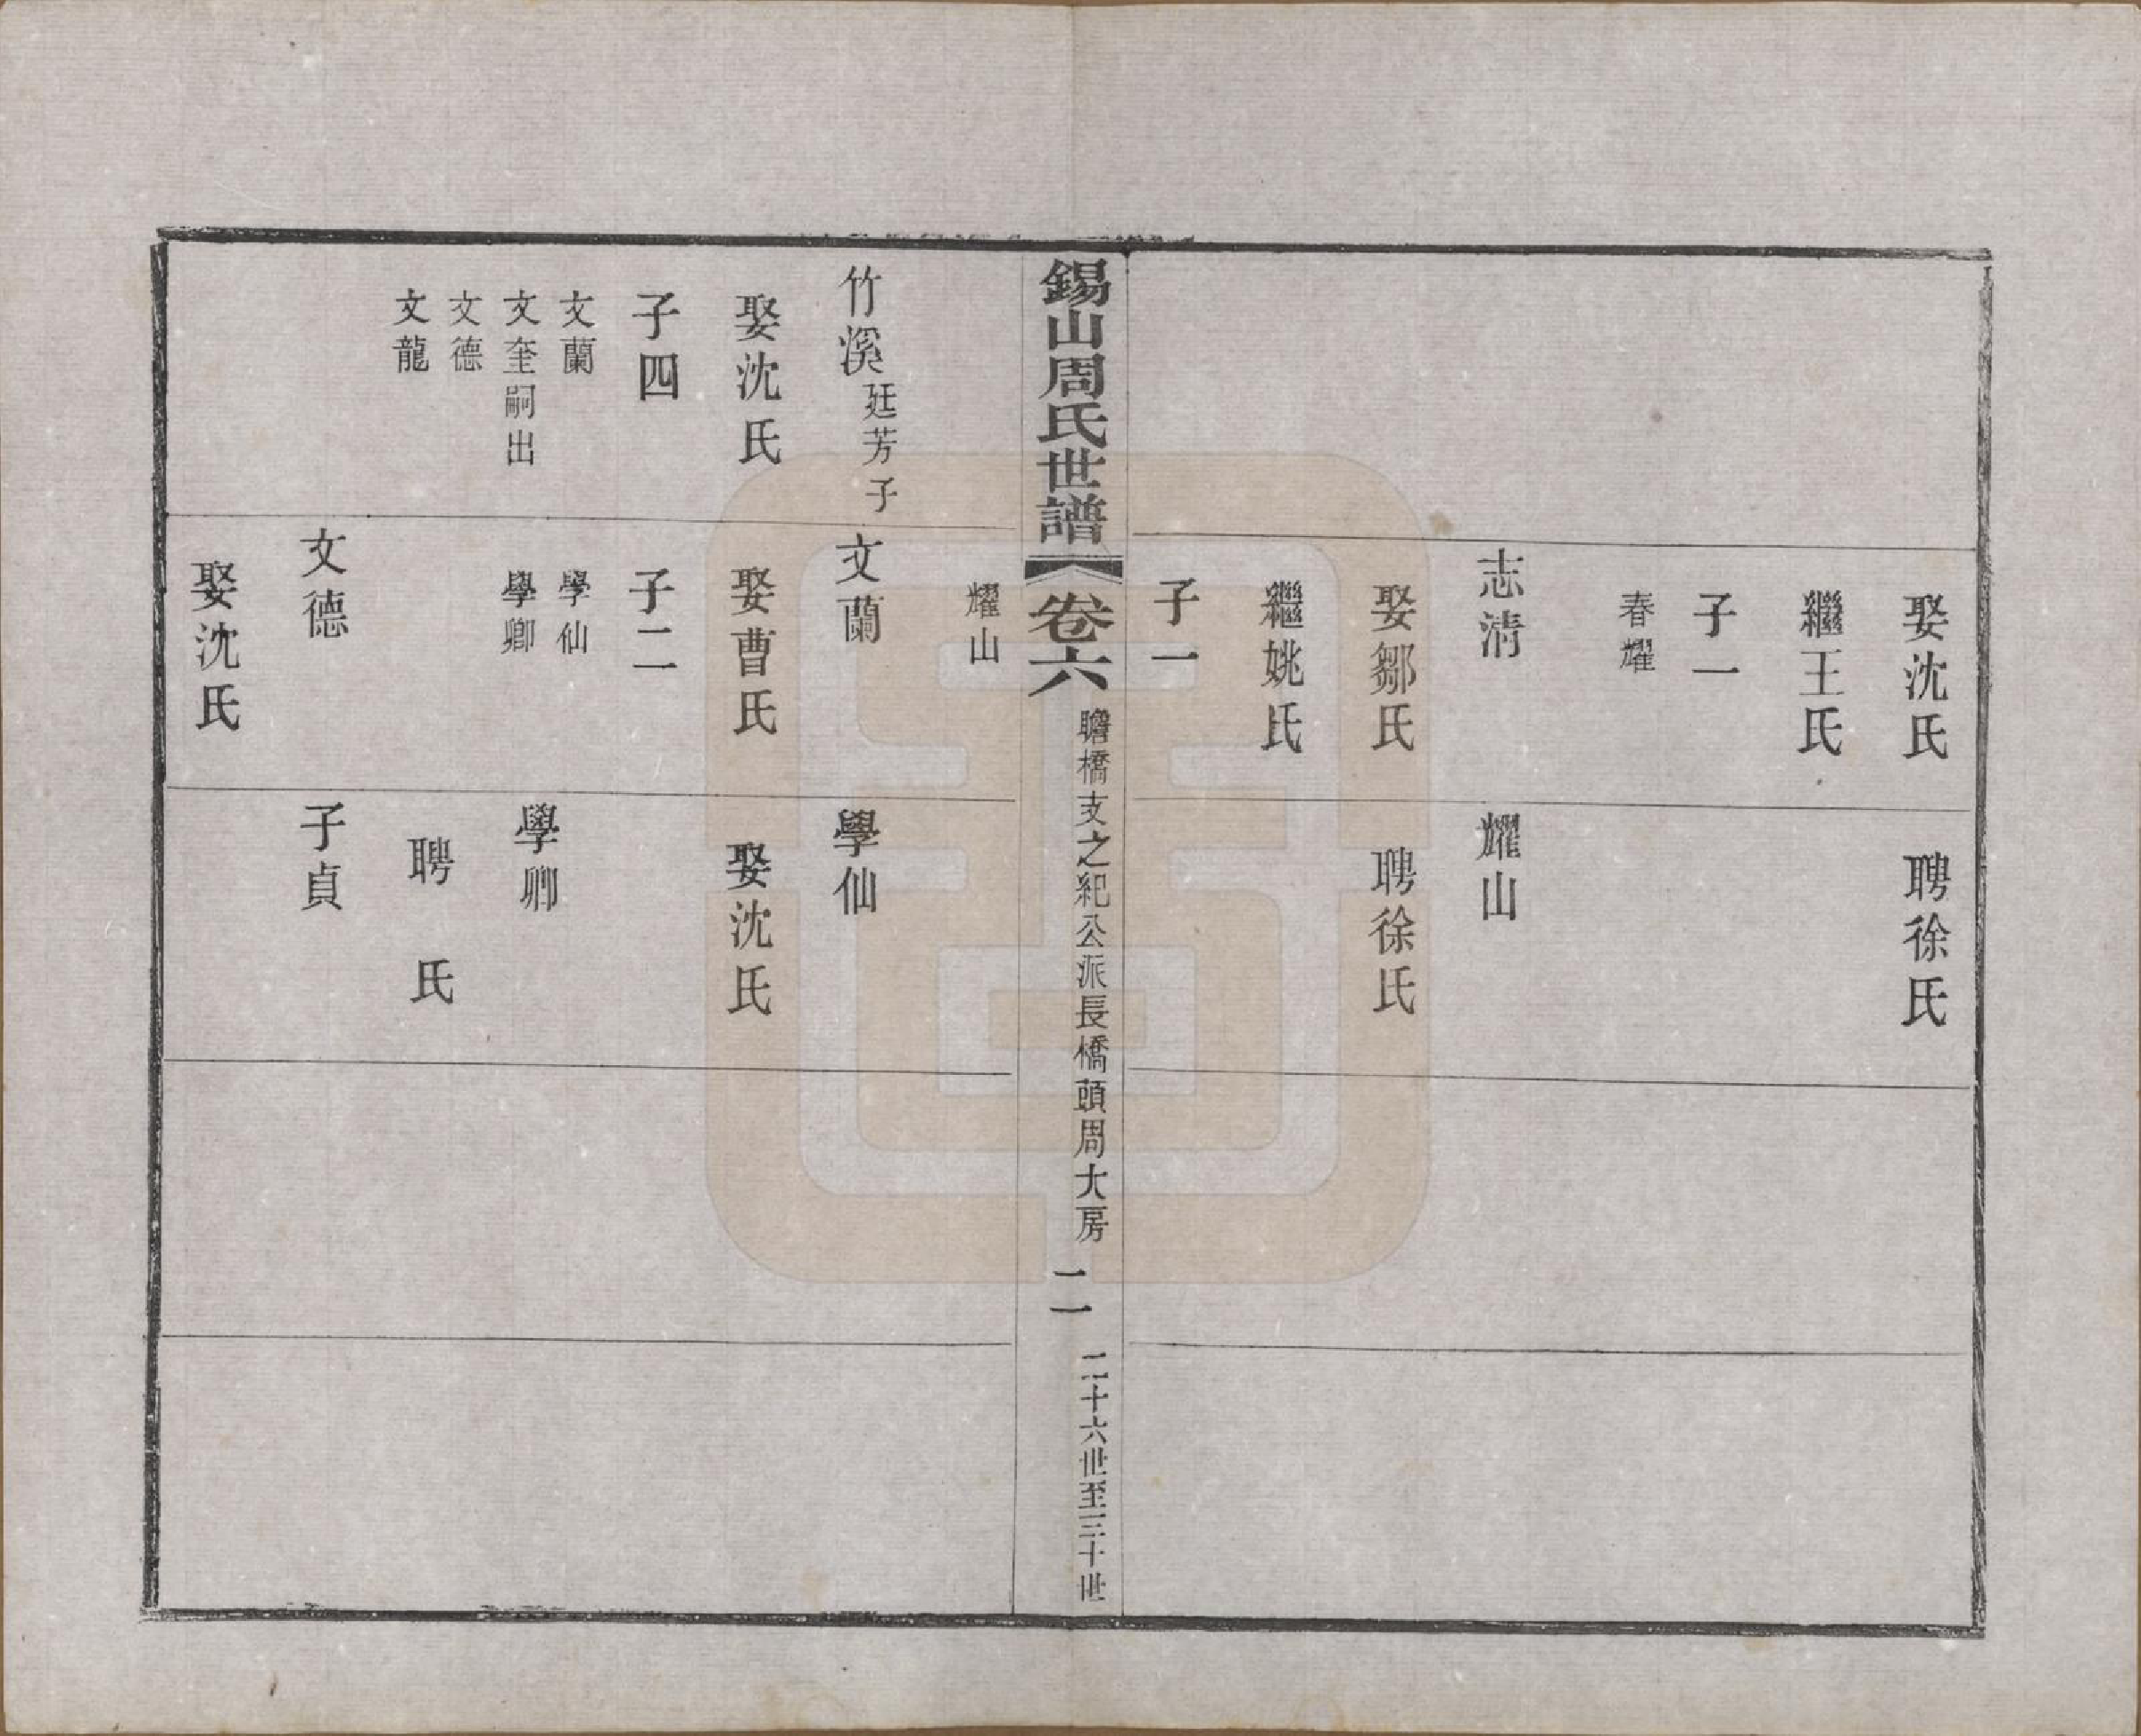 娶沈氏
繼王氏
子一
春耀
志清
娶鄒氏
繼姚氏
子一
聘徐氏
耀山
聘徐氏
錫山周氏世譜
卷六
瞻橋支之紀公派長橋頭周大房
二
二十六世至三十世
耀山
竹溪廷芳子
娶沈氏
子四
文蘭
文奎嗣出
文德
文龍
文蘭
娶曹氏
子二
學仙
學卿
文德
娶沈氏
學仙
娶沈氏
學卿
聘　氏
子貞